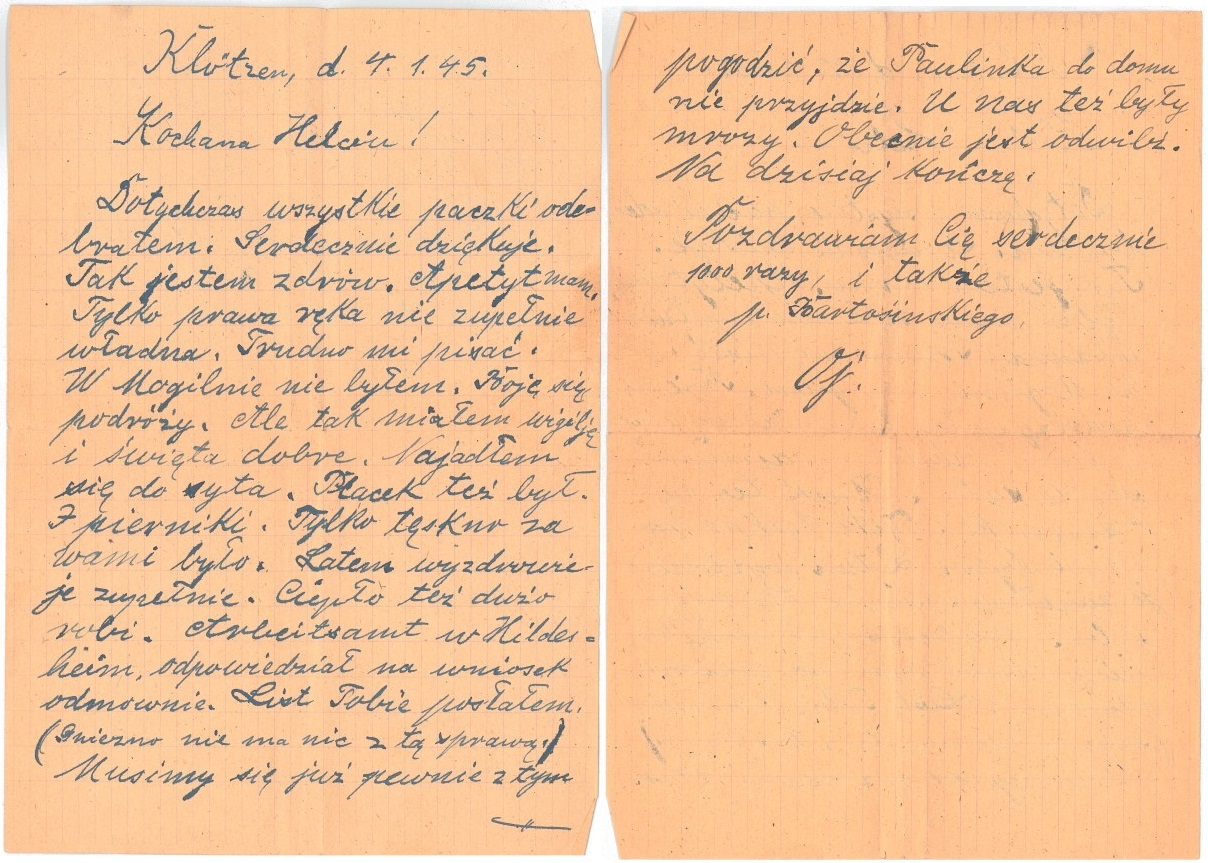 Klötzen, d. 4. 1. 45.
Kochana Helciu!
Dotychczas wszystkie paczki ode-
brałem. Serdecznie dziękuję.
Tak jestem zdrów. Apetyt mam.
Tylko prawa ręka nie zupełnie
władna. Trudno mi pisać.
W Mogilnie nie byłem. Boję się
podróży. Ale tak miałem wigilję
i święta dobre. Najadłem
się do syta. Placek też był.
I pierniki. Tylko tęskno za
wami było. Latem wyzdrowie-
ję zupełnie. Ciepło też dużo
robi. Arbeitsamt w Hildes=
heim, odpowiedział na wniosek
odmownie. List Tobie posłałem.
(Gniezno nie ma nic z tą sprawą.)
Musimy się już pewnie z tym
pogodzić, że Paulinka do domu
nie przyjdzie. U nas też były
mrozy. Obecnie jest odwilż.
Na dzisiaj kończę.
Pozdrawiam Cię serdecznie
1000 razy, i także
p. Bartosińskiego.
Oj.